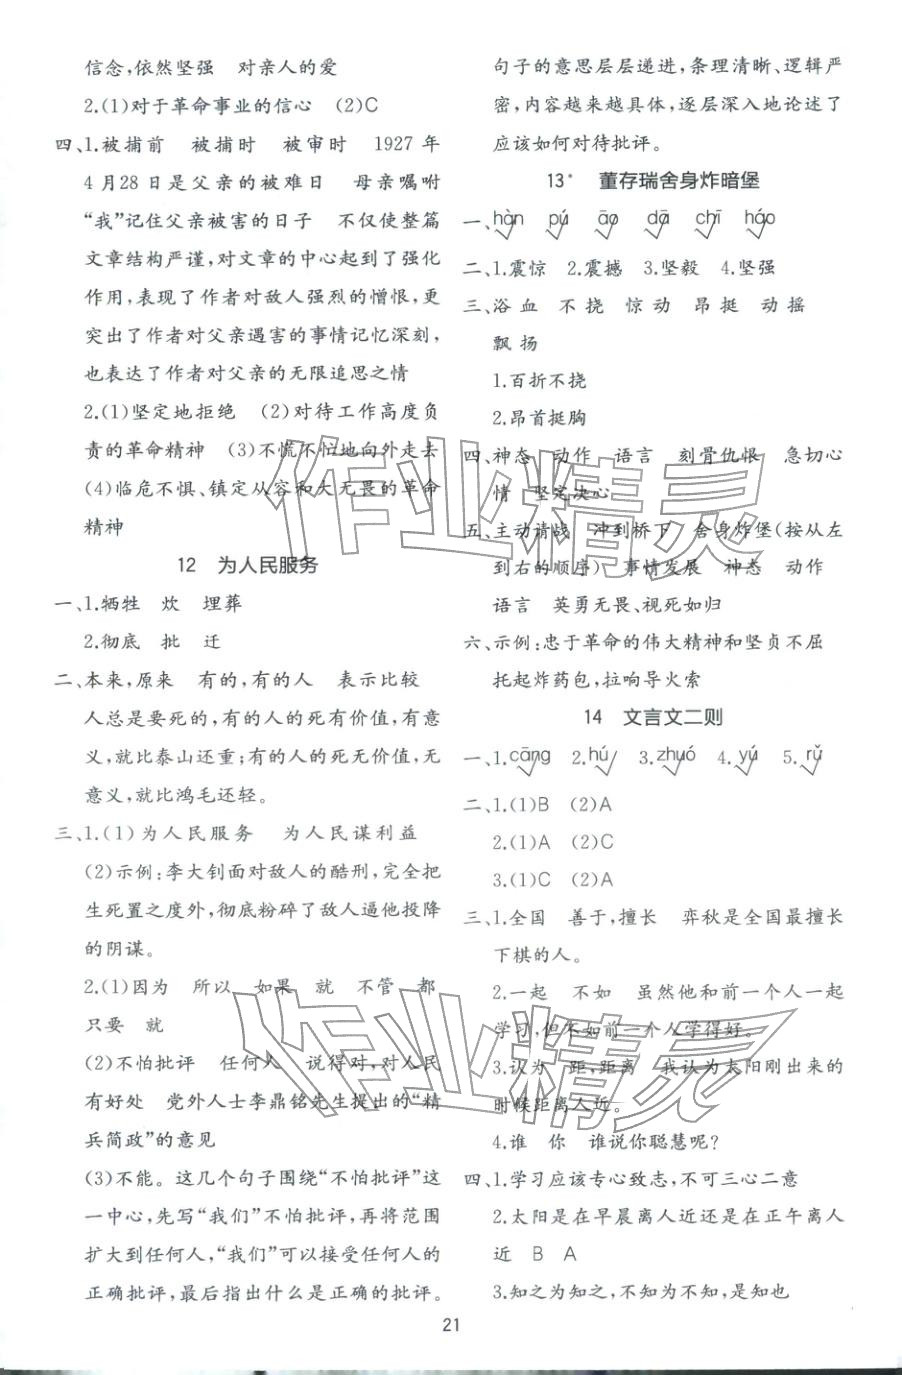 信念,依然坚强　对亲人的爱
2.(1)对于革命事业的信心　(2)C
四、1.被捕前　被捕时　被审时　1927 年
4月28日是父亲的被难日　母亲嘱咐
“我”记住父亲被害的日子　不仅使整篇
文章结构严谨,对文章的中心起到了强化
作用,表现了作者对敌人强烈的憎恨,更
突出了作者对父亲遇害的事情记忆深刻,
也表达了作者对父亲的无限追思之情
2.(1)坚定地拒绝　(2)对待工作高度负
责的革命精神　(3)不慌不忙地向外走去
(4)临危不惧、镇定从容和大无畏的革命
精神
12　为人民服务
一、1.牺牲　炊　埋葬
2.彻底　批　迁
二、本来,原来　有的,有的人　表示比较
人总是要死的,有的人的死有价值,有意
义,就比泰山还重;有的人的死无价值,无
意义,就比鸿毛还轻。
三、1.(1)为人民服务　为人民谋利益
(2)示例:李大钊面对敌人的酷刑,完全把
生死置之度外,彻底粉碎了敌人逼他投降
的阴谋。
2.(1)因为　所以　如果　就　不管　都
只要　就
(2)不怕批评　任何人　说得对,对人民
有好处　党外人士李鼎铭先生提出的“精
兵简政”的意见
(3)不能。这几个句子围绕“不怕批评”这
一中心,先写“我们”不怕批评,再将范围
扩大到任何人,“我们”可以接受任何人的
正确批评,最后指出什么是正确的批评。
句子的意思层层递进,条理清晰、逻辑严
密,内容越来越具体,逐层深入地论述了
应该如何对待批评。
13*　董存瑞舍身炸暗堡
一、hàn　pú　āo　dā　chī　háo
二、1.震惊　2.震撼　3.坚毅　4.坚强
三、浴血　不挠　惊动　昂挺　动摇
飘扬
1.百折不挠
2.昂首挺胸
四、神态　动作　语言　刻骨仇恨　急切心
情　坚定决心
五、主动请战　冲到桥下　舍身炸堡(按从左
到右的顺序)　事情发展　神态　动作
语言　英勇无畏、视死如归
六、示例:忠于革命的伟大精神和坚贞不屈
托起炸药包,拉响导火索
14　文言文二则
一、1.cāng　2.hú　3.zhuó　4.yú　5.rǔ
二、1.(1)B　(2)A
2.(1)A　(2)C
3.(1)C　(2)A
三、1.全国　善于,擅长　弈秋是全国最擅长
下棋的人。
2.一起　不如　虽然他和前一个人一起
学习,但不如前一个人学得好。
3.认为　距,距离　我认为太阳刚出来的
时候距离人近。
4.谁　你　谁说你聪慧呢?
四、1.学习应该专心致志,不可三心二意
2.太阳是在早晨离人近还是在正午离人
近　B　A
3.知之为知之,不知为不知,是知也
21
作业精灵
作业精灵